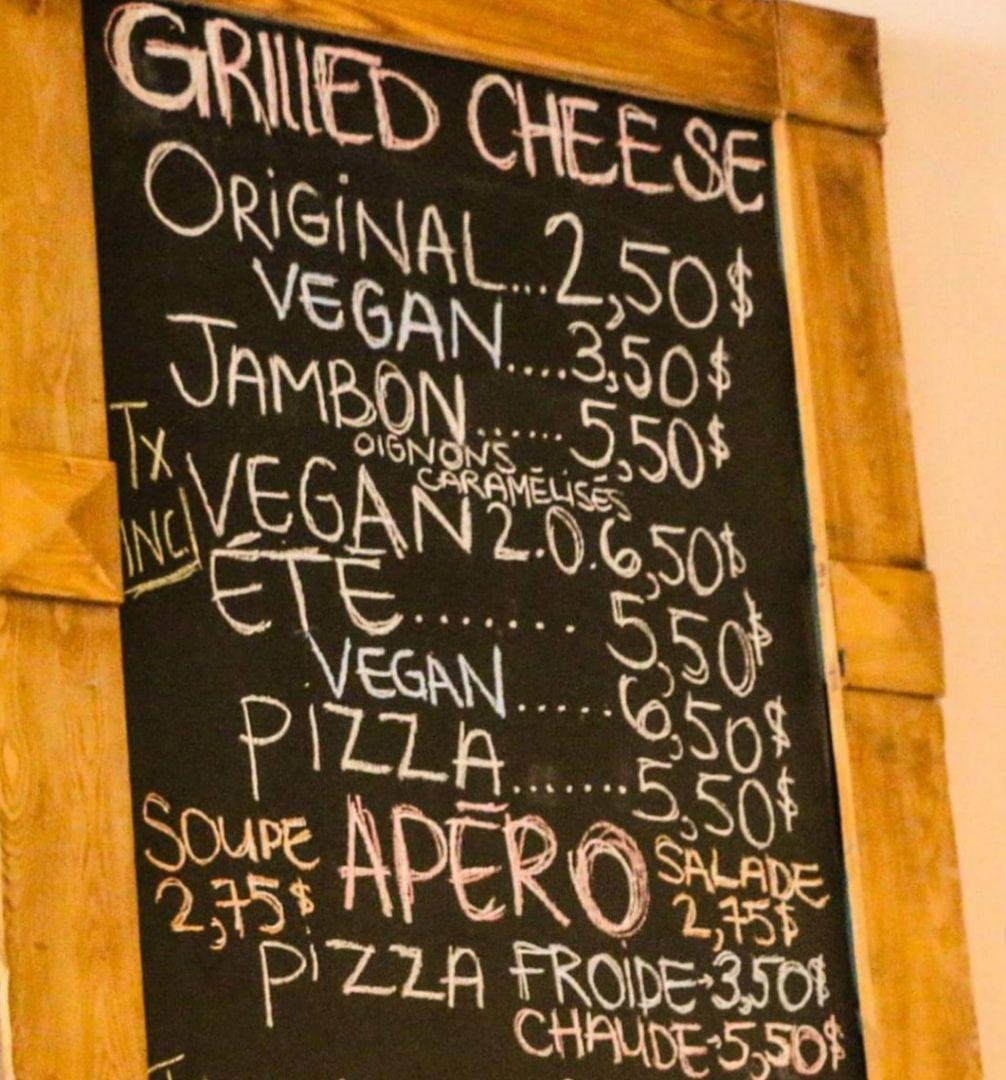 GRILLED CHEESE
ORiGiNAL...2,50$
VEGAN....3,50$
JAMBON......5,50$
OIGNONS
CARAMÉLISÉS
Tx
INCl
VEGAN 2.0.6,50$
ÉTÉ.......5,50$
VEGAN.....6,50$
PIZZA.......5,50$
SOUPE
2,75$
APÉRO
SALADE
2,75$
PiZZA FROIDE→3,50$
CHAUDE→5,50$